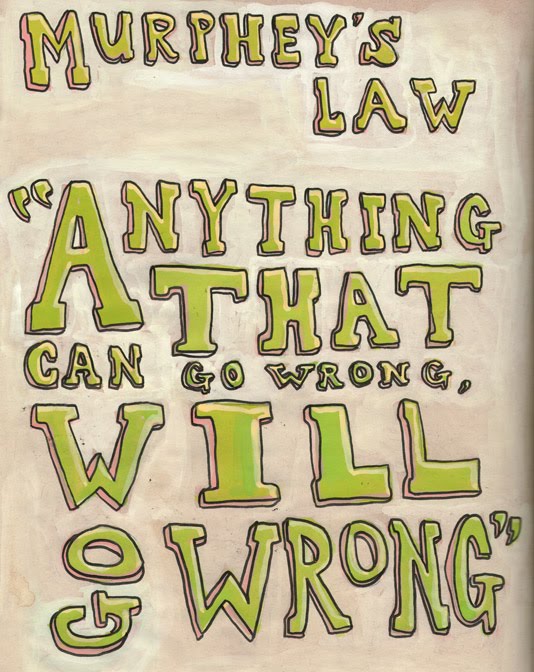 MURPHEY'S
LAW
"ANYTHING
THAT
CAN GO WRONG,
WILL
GO WRONG"